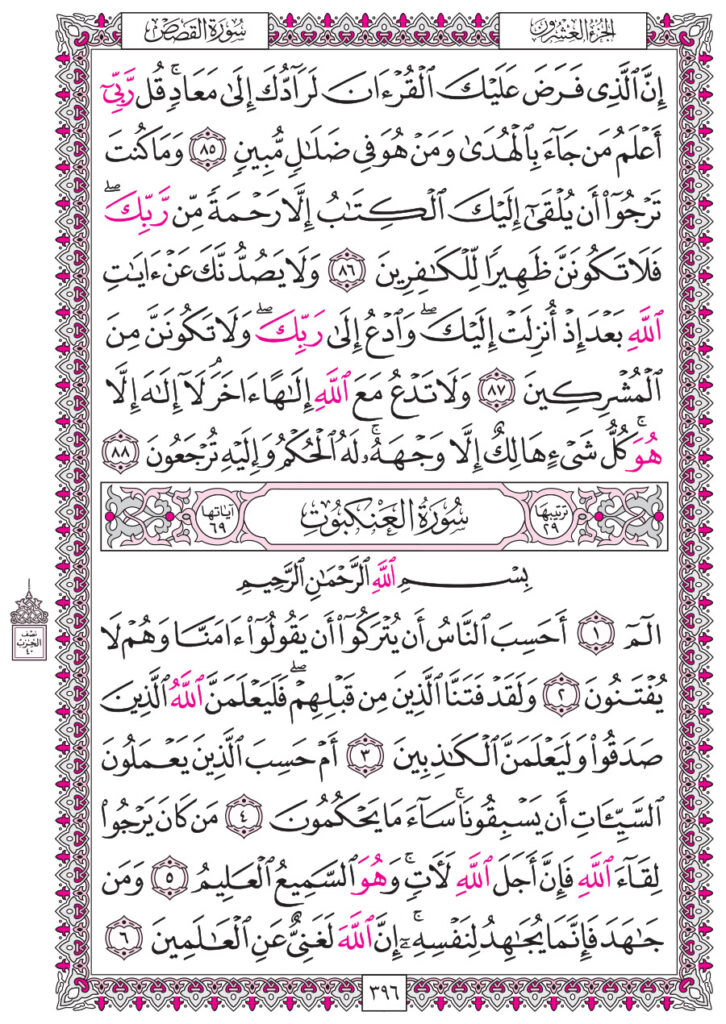 الجزء العشرون
سورة القصص
إِنَّ ٱلَّذِى فَرَضَ عَلَيْكَ ٱلْقُرْءَانَ لَرَآدُّكَ إِلَىٰ مَعَادٍۢ ۚ قُل رَّبِّىٓ
أَعْلَمُ مَن جَآءَ بِٱلْهُدَىٰ وَمَنْ هُوَ فِى ضَلَـٰلٍۢ مُّبِينٍۢ ٨٥ وَمَا كُنتَ
تَرْجُوٓا۟ أَن يُلْقَىٰٓ إِلَيْكَ ٱلْكِتَـٰبُ إِلَّا رَحْمَةًۭ مِّن رَّبِّكَ ۖ
فَلَا تَكُونَنَّ ظَهِيرًۭا لِّلْكَـٰفِرِينَ ٨٦ وَلَا يَصُدُّنَّكَ عَنْ ءَايَـٰتِ
ٱللَّهِ بَعْدَ إِذْ أُنزِلَتْ إِلَيْكَ ۖ وَٱدْعُ إِلَىٰ رَبِّكَ ۖ وَلَا تَكُونَنَّ مِنَ
ٱلْمُشْرِكِينَ ٨٧ وَلَا تَدْعُ مَعَ ٱللَّهِ إِلَـٰهًا ءَاخَرَ ۘ لَآ إِلَـٰهَ إِلَّا
هُوَ ۚ كُلُّ شَىْءٍ هَالِكٌ إِلَّا وَجْهَهُۥ ۚ لَهُ ٱلْحُكْمُ وَإِلَيْهِ تُرْجَعُونَ ٨٨
ترتيبها ٢٩ سورة العنكبوت آياتها ٦٩
بِسْمِ ٱللَّهِ ٱلرَّحْمَـٰنِ ٱلرَّحِيمِ
الٓمٓ ١ أَحَسِبَ ٱلنَّاسُ أَن يُتْرَكُوٓا۟ أَن يَقُولُوٓا۟ ءَامَنَّا وَهُمْ لَا
يُفْتَنُونَ ٢ وَلَقَدْ فَتَنَّا ٱلَّذِينَ مِن قَبْلِهِمْ ۖ فَلَيَعْلَمَنَّ ٱللَّهُ ٱلَّذِينَ
صَدَقُوا۟ وَلَيَعْلَمَنَّ ٱلْكَـٰذِبِينَ ٣ أَمْ حَسِبَ ٱلَّذِينَ يَعْمَلُونَ
ٱلسَّيِّـَٔاتِ أَن يَسْبِقُونَا ۚ سَآءَ مَا يَحْكُمُونَ ٤ مَن كَانَ يَرْجُوا۟
لِقَآءَ ٱللَّهِ فَإِنَّ أَجَلَ ٱللَّهِ لَـَٔاتٍۢ ۚ وَهُوَ ٱلسَّمِيعُ ٱلْعَلِيمُ ٥ وَمَن
جَـٰهَدَ فَإِنَّمَا يُجَـٰهِدُ لِنَفْسِهِۦٓ ۚ إِنَّ ٱللَّهَ لَغَنِىٌّ عَنِ ٱلْعَـٰلَمِينَ ٦
نصف
الحزب
٤٠
٣٩٦